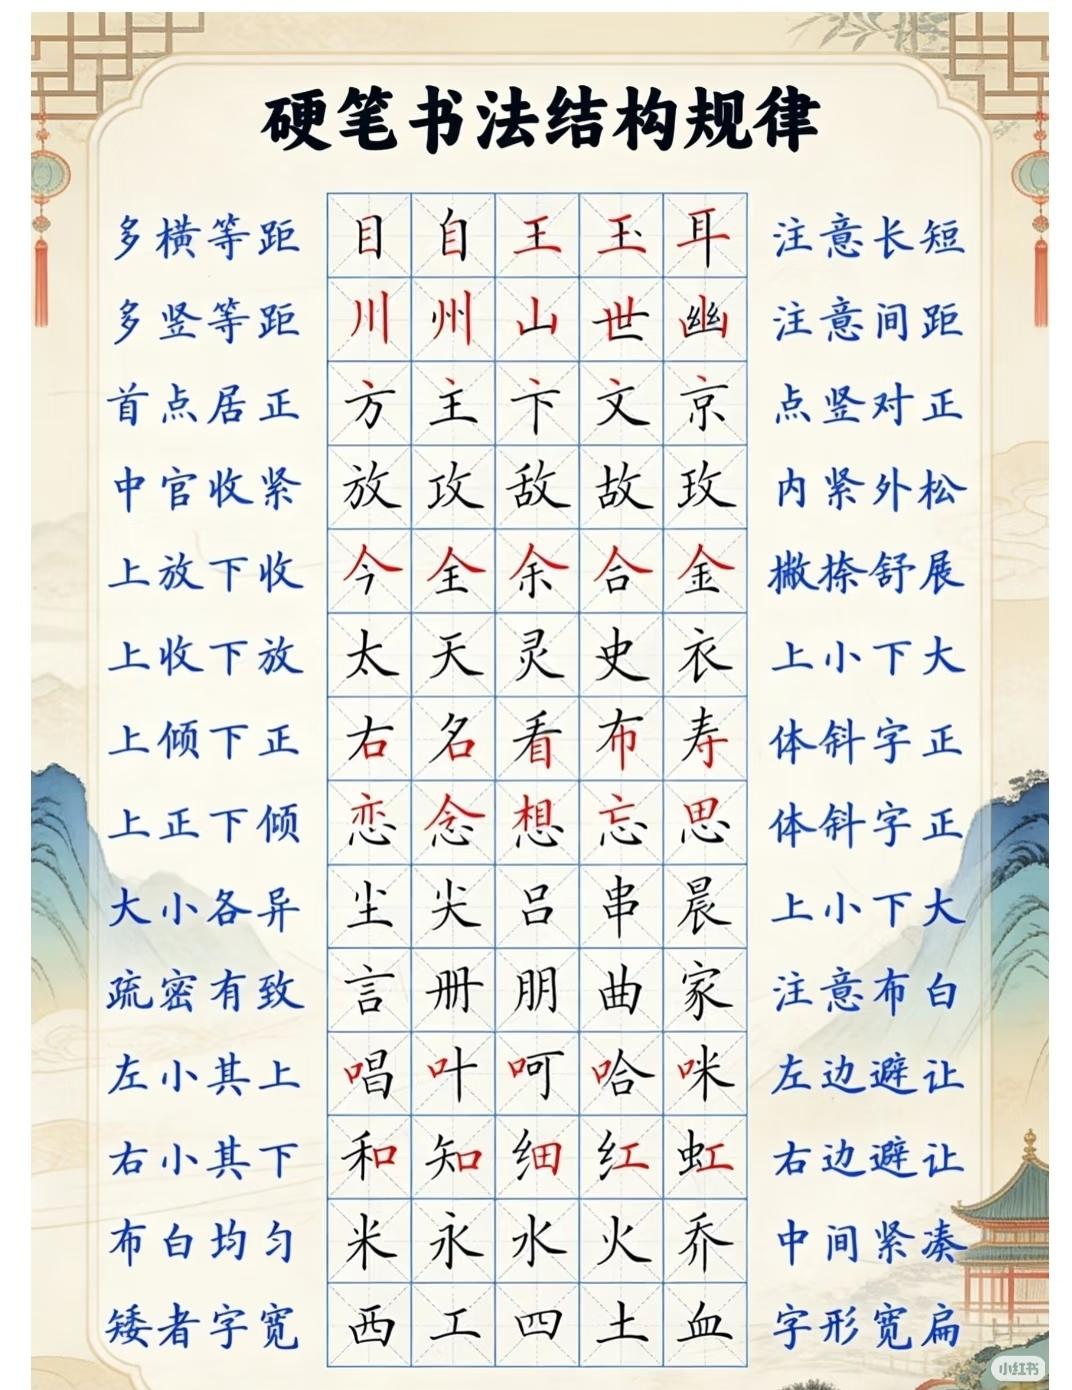 硬笔书法结构规律
多横等距 目自王玉耳 注意长短
多竖等距 川州山世幽 注意间距
首点居正 方主卞文京 点竖对正
中宫收紧 放攻敌故玫 内紧外松
上放下收 今全余合金 撇捺舒展
上收下放 太天灵史衣 上小下大
上倾下正 右名看布寿 体斜字正
上正下倾 恋念想忘思 体斜字正
大小各异 尘尖吕串晨 上小下大
疏密有致 言册朋曲家 注意布白
左小其上 唱叶呵哈咪 左边避让
右小其下 和知细红虹 右边避让
布白均匀 米永水火乔 中间紧凑
矮者字宽 西工四土血 字形宽扁
小红书